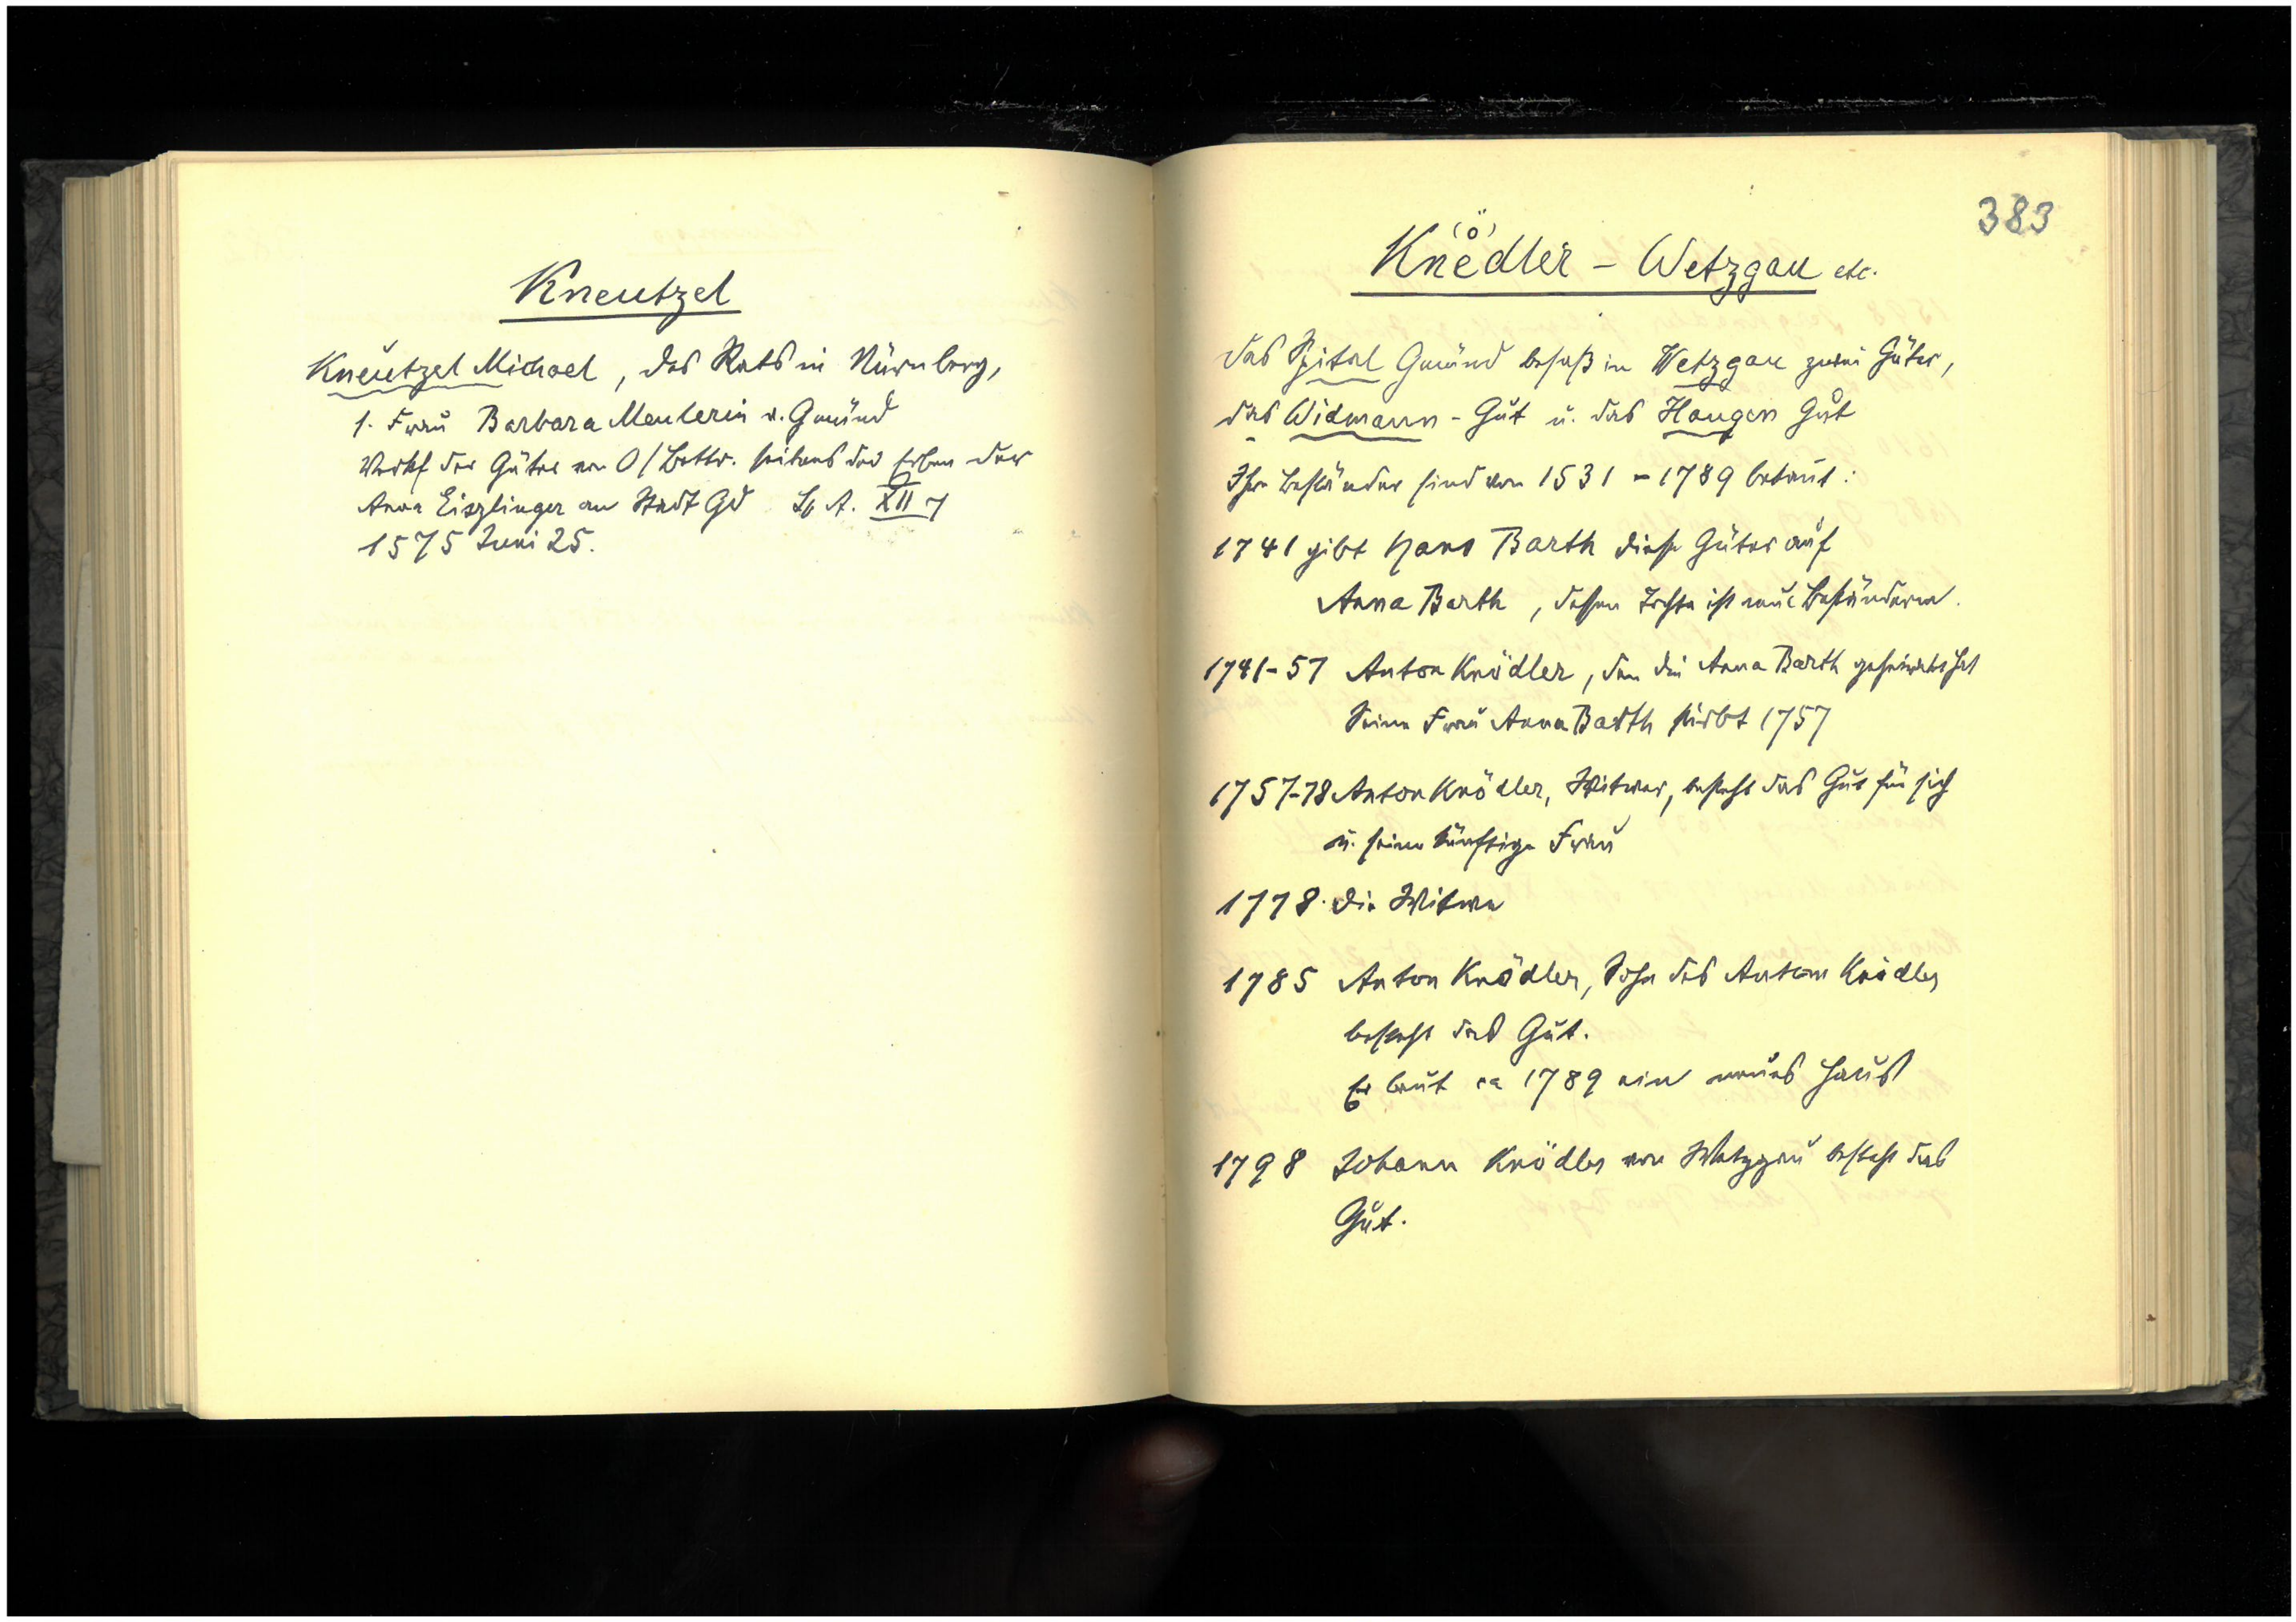 Kneutzel
Kneutzel Michael, des Rats in Nürnberg,
1. Frau Barbara Meulerin v. Gmünd
Verkf der Güter von O/Bettr. seitens der Erben der
Anna Eiszlinger an Stadt Gd Sp A. XII 7
1575 Juni 25.
383
(ö)
Knedler - Wetzgau etc.
Das Spital Gmünd besaß in Wetzgau zwei Güter,
das Widmann-Gut u. das Haugen Gut
Ihre Beständer sind von 1531 - 1789 bekannt:
1741 gibt Hans Barth diese Güter auf
Anna Barth, dessen Tochter ist neue Beständerin.
1741-57 Anton Knödler, den die Anna Barth geheiratet hat
Seine Frau Anna Barth stirbt 1757
1757-78 Anton Knödler, Witwer, besteht das Gut für sich
u. seine künftige Frau
1778. die Witwe
1785 Anton Knödler, Sohn des Anton Knödler
besteht das Gut.
Er baut ca 1789 ein neues Haus
1798 Johann Knödler von Wetzgau besteht das
Gut.